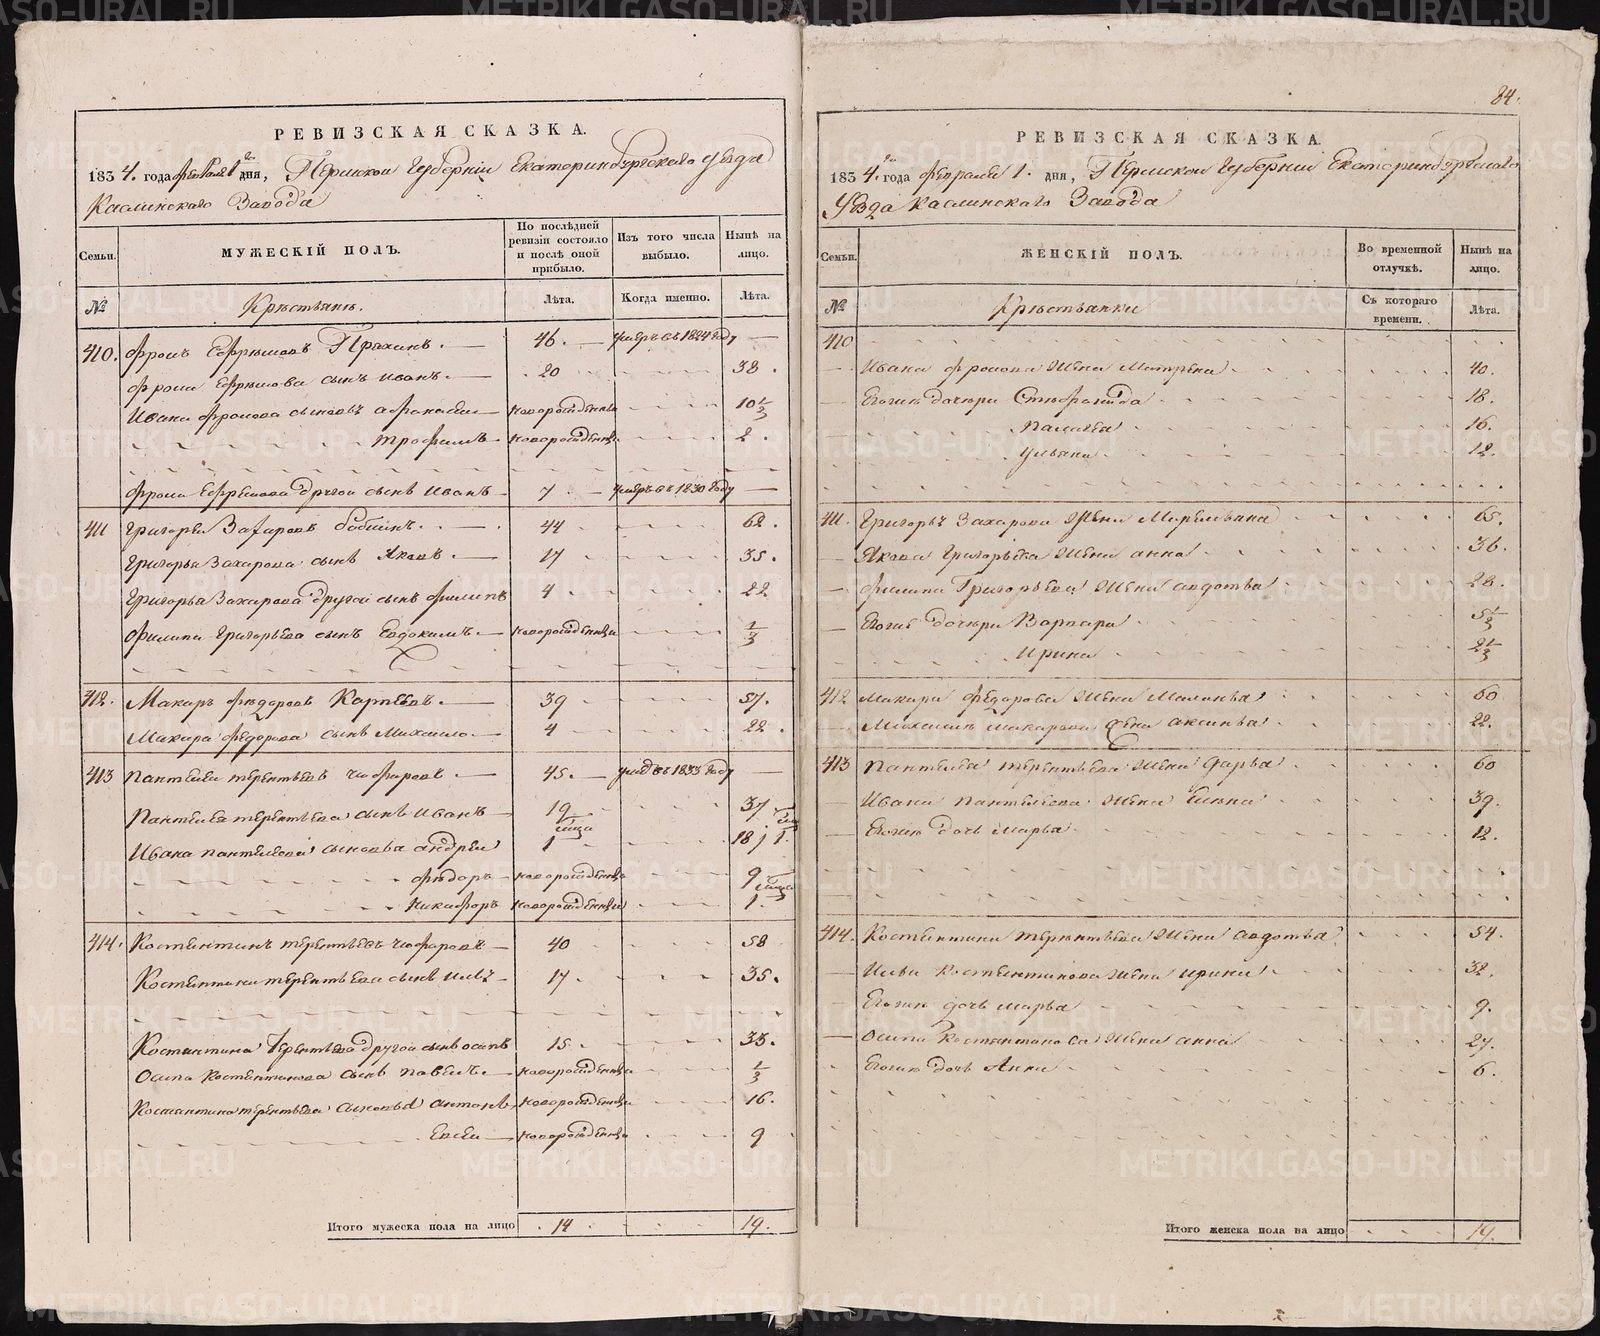 РЕВИЗСКАЯ СКАЗКА.
1834. года февраля 1го дня, Пермской Губернiи Екатеринбургского уезда
Каслинского Завода
Семьи. МУЖЕСКIЙ ПОЛЪ. По последней ревизiи состояло и после оной прибыло. Изъ того числа выбыло. Ныне на лицо.
№ Крестьяне. Лета. Когда именно. Лета.
410. Фролъ Ефремовъ 46. умеръ въ 1824 году
Фрола Ефремова сынъ Иванъ 20 38.
Ивана Фролова сыновья Афанасей новорожденны 10 1/2
Трофимъ новорожденны 2.
Фрола Ефремова другой сынъ Иванъ 7 умеръ въ 1830 году
411 Григорей Захаровъ 44 62.
Григорья Захарова сынъ Яковъ 17 35.
Григорья Захарова другой сынъ Филипъ 4 22
Филипа Григорьева сынъ Евдокимъ новорожденны 1/3
412. Макаръ Федоровъ Карпеевъ 39 57.
Макара Федорова сынъ Михайло 4 22.
413 Пантелей Терентьевъ Чюфаровъ 45. умеръ въ 1833 году
Пантелея Терентьева сынъ Иванъ 19 37
Ивана Пантелеева сыновья Андрей 1 18 / 1.
Федоръ новорожденны 9
Никифоръ новорожденны 1.
414. Костентинъ Терентьевъ Чюфаровъ 40 58
Костентина Терентьева сынъ 17 35.
Костантина Терентьева другой сынъ Осипъ 15 33.
Осипа Костентинова сынъ Павелъ новорожденны 1/3
Костантина Терентьева сыновья Антонъ новорожденны 16.
Евсей новорожденны 9
Итого мужеска пола на лицо 14 19.
84.
РЕВИЗСКАЯ СКАЗКА
1834го года февраля 1. дня, Пермской Губернiи Екатеринбургского
Уезда Каслинского Завода
Семьи. ЖЕНСКIЙ ПОЛЪ. Во временной отлучке. Ныне на лицо.
№ Крестьянки Съ котораго времени. Лета.
410
Ивана Фролова жена Матрена 40.
Егоже дочери Степанида 18.
Палагея 16.
Ульяна 12.
411. Григорья Захарова жена Маремьяна 65.
Якова Григорьева жена Анна 36.
Филипа Григорьева жена Авдотья 28.
Егоже дочери Варвара 5 1/2
Ирина 2 1/3
412 Макара Федорова жена Маланья 60
Михаила Макарова жена Аксинья 22.
413 Пантелея Терентьева жена Дарья 60
Ивана Пантелеева жена Елена 39.
Егоже дочь Марья 12.
414. Костентина Терентьева жена Авдотья 54.
Костентинова жена Ирина 32.
Егоже дочь Марья 9.
Осипа Костантинова жена Анна 27.
Егоже дочь Анна 6.
Итого женска пола на лицо 19.
METRIKI.GASO-URAL.RU